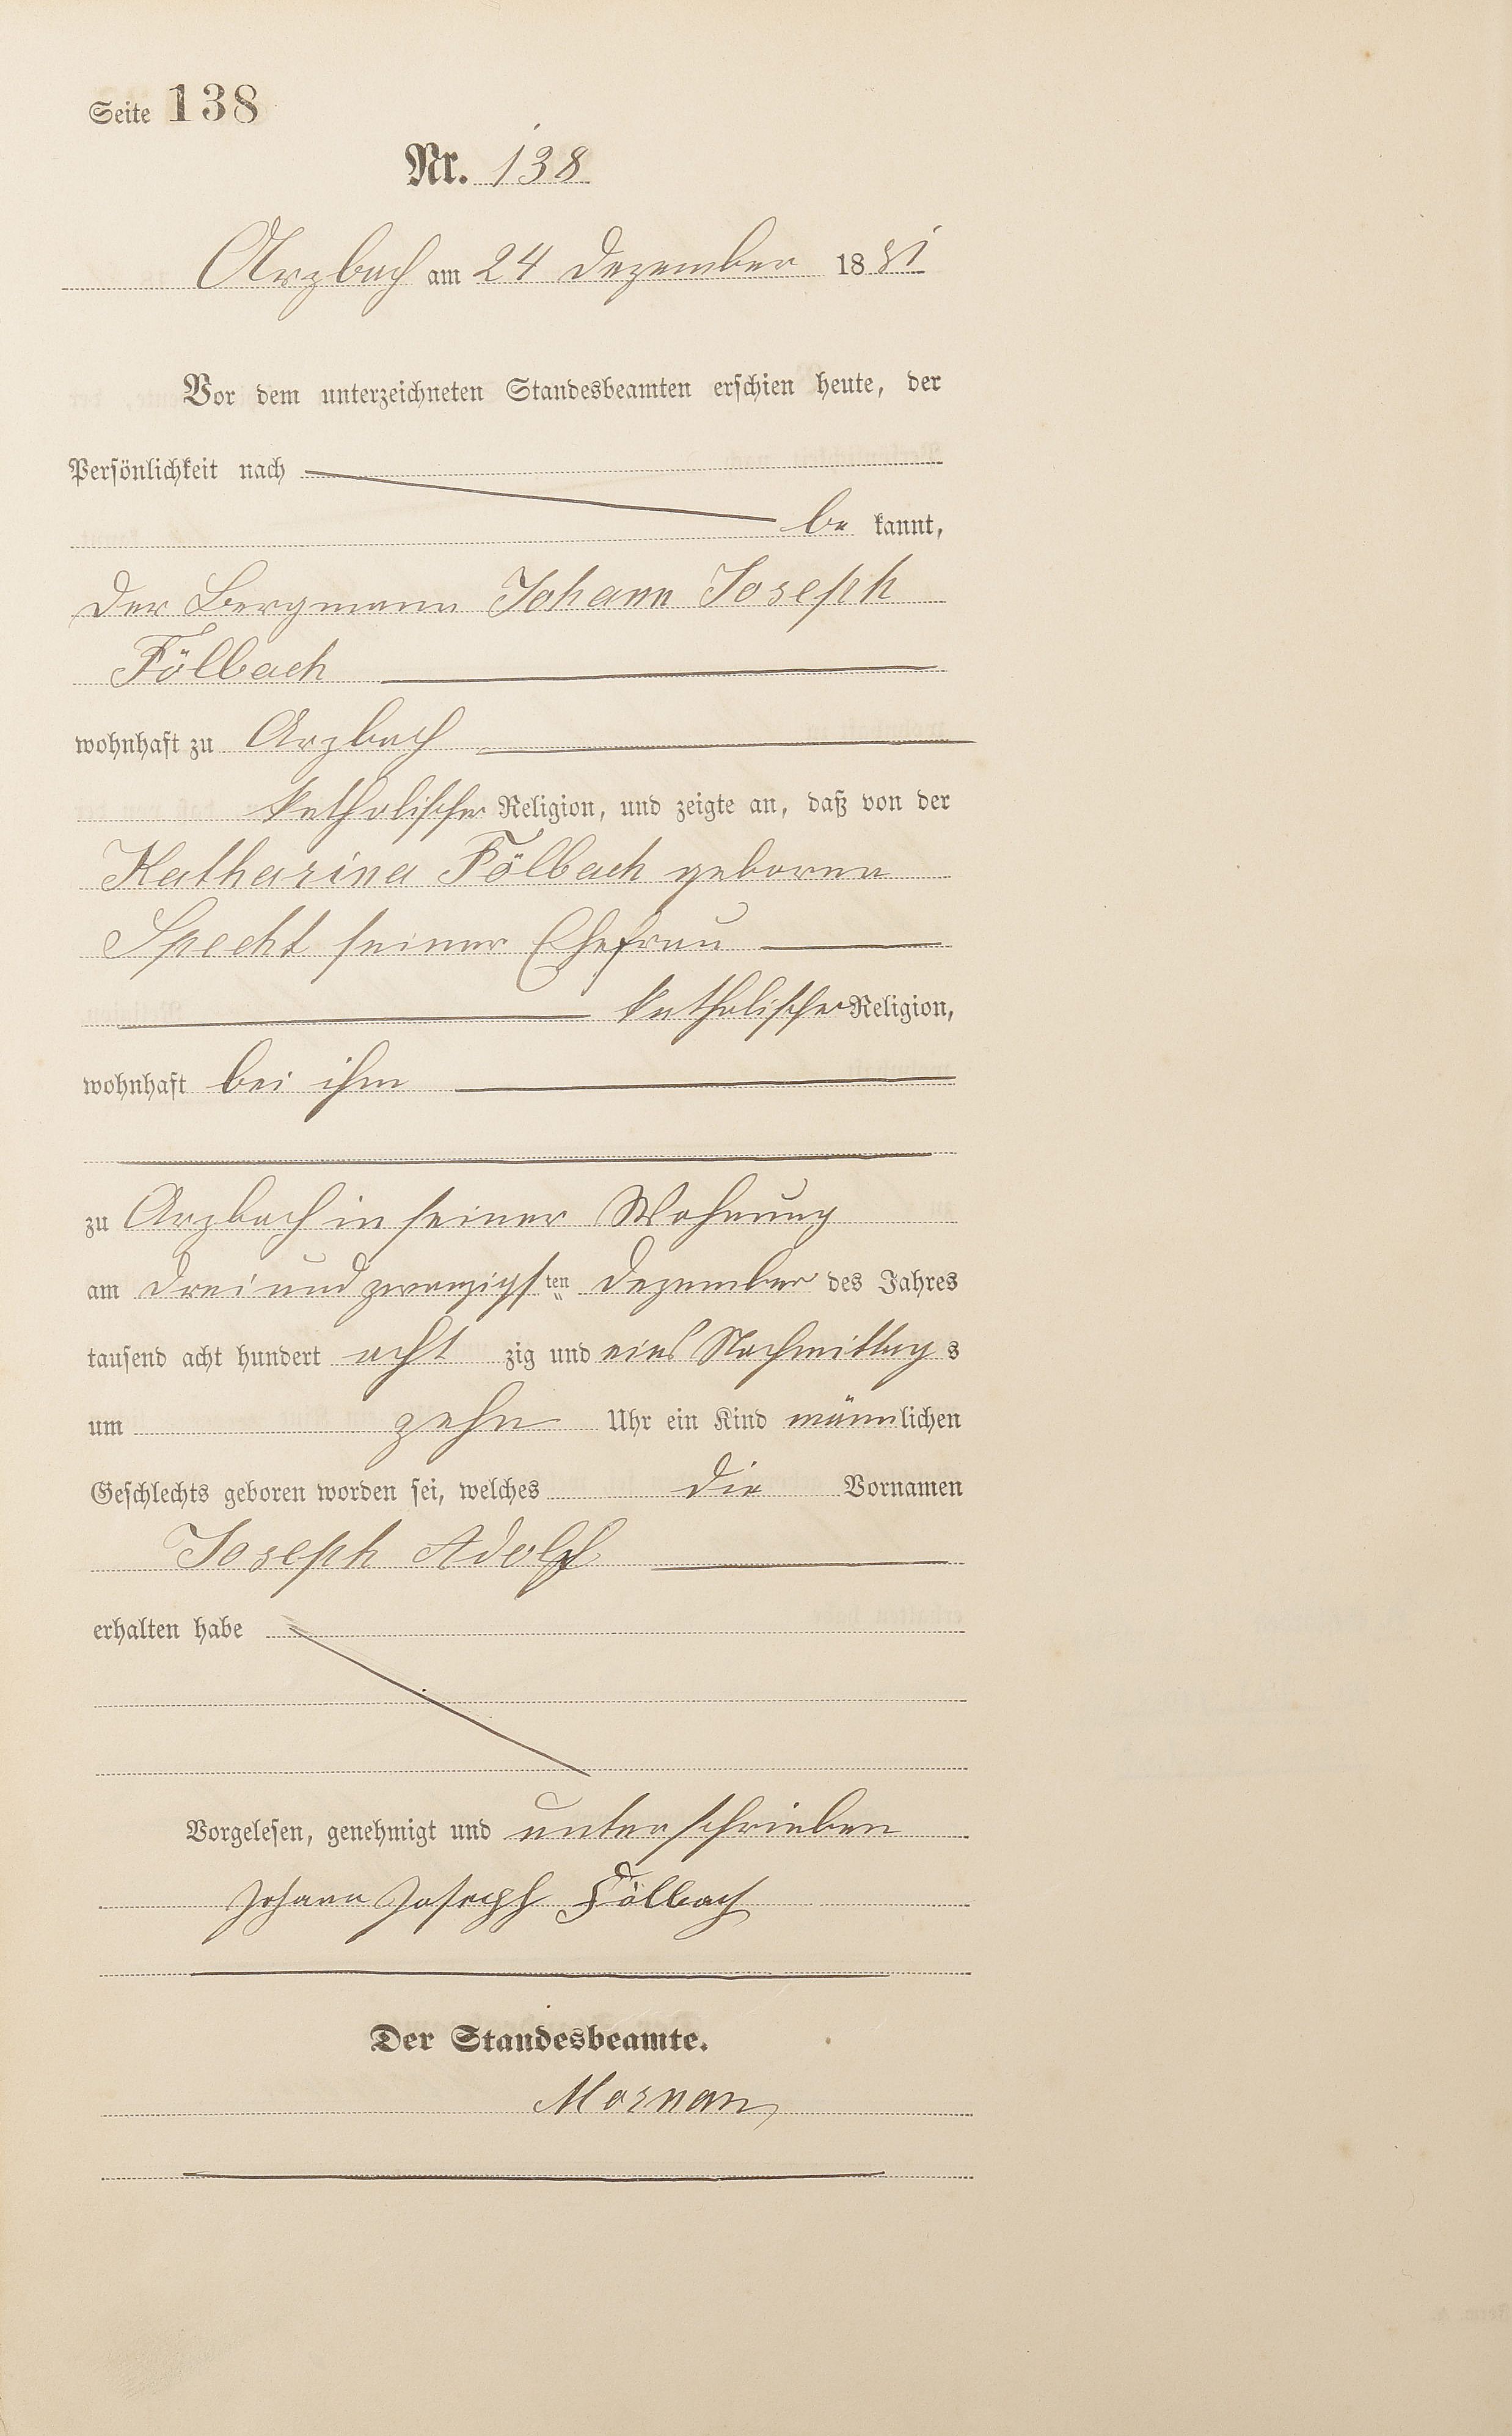 Seite 138
Nr. 138
Arzbach am 24 Dezember 1881
Vor dem unterzeichneten Standesbeamten erschien heute, der
Persönlichkeit nach
be kannt,
der Bergmann Johann Joseph
Fölbach
wohnhaft zu Arzbach
katholischer Religion, und zeigte an, daß von der
Katharina Fölbach geborne
Specht seiner Ehefrau
katholischer Religion,
wohnhaft bei ihm
zu Arzbach in seiner Wohnung
am drei und zwanzigsten Dezember des Jahres
tausend acht hundert acht zig und eins Nachmittags
um zehn Uhr ein Kind männlichen
Geschlechts geboren worden sei, welches die Vornamen
Joseph Adolph
erhalten habe
Vorgelesen, genehmigt und unterschrieben
Johann Joseph Fölbach
Der Standesbeamte.